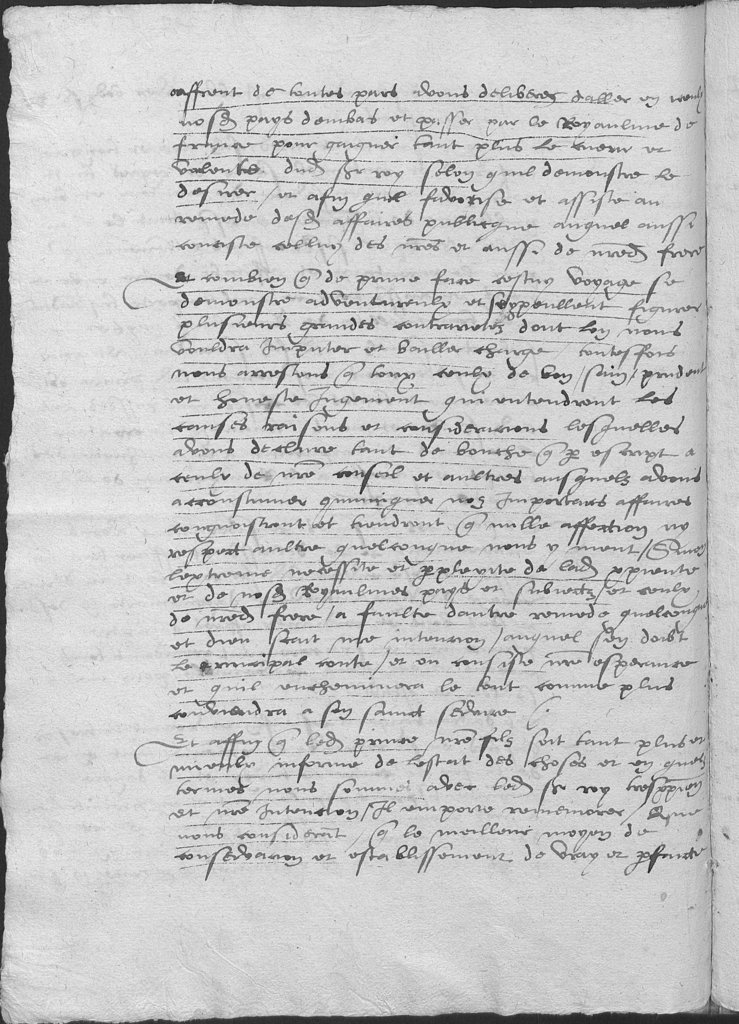 offrent de toutes pars avons delibere daller en
nosd pays dembas et passer par le Royaulme de
france pour gaigner tant plus le cueur et
voulente dud Sr roy selon quil demonstre le
desirer / et afin quil favorise et assiste au
remede desd affaires publicque auquel aussi
consiste celluy des nres et aussi de nred frere
Et combien q de prime face cestuy voyage se
demonstre adventureulx et figurer
plusieurs grandes contrarietez dont lon nous
vouldra Imputer et bailler charge / toutesfois
nous arrestons q tous ceulx de bon / sain / prudent
et honeste Jugement qui entendront les
causes raisons et consideracions lesquelles
avons declaire tant de bouche q p escript a
ceulx de nre conseil et aultres ausquelz avons
accoustumer qmunicquer noz Importans affaires
congnoistront et tiendront q nulle affection ny
respect aultre quelconque nous y meut /
lextreme necessite et pplexite de lad xpiente
et de nosd Royaulmes pays et subiectz et ceulx
de nred frere / a faulte dautre remede quelconque
et dieu scait me intencion / auquel sen doibt
le principal conte / et en consiste nre esperance
et quil encheminera le tout comme plus
conviendra a son sainct service /
Et affin q led prince nre filz soit tant plus et
mieulx informe de lestat des choses et en quelz
termes nous sommes avec led Sr roy trespxien
et nre Intencion / Il emporte rememorer que
nous considerat q le meilleur moyen de
conservacion et establissement de vray et pfaicte